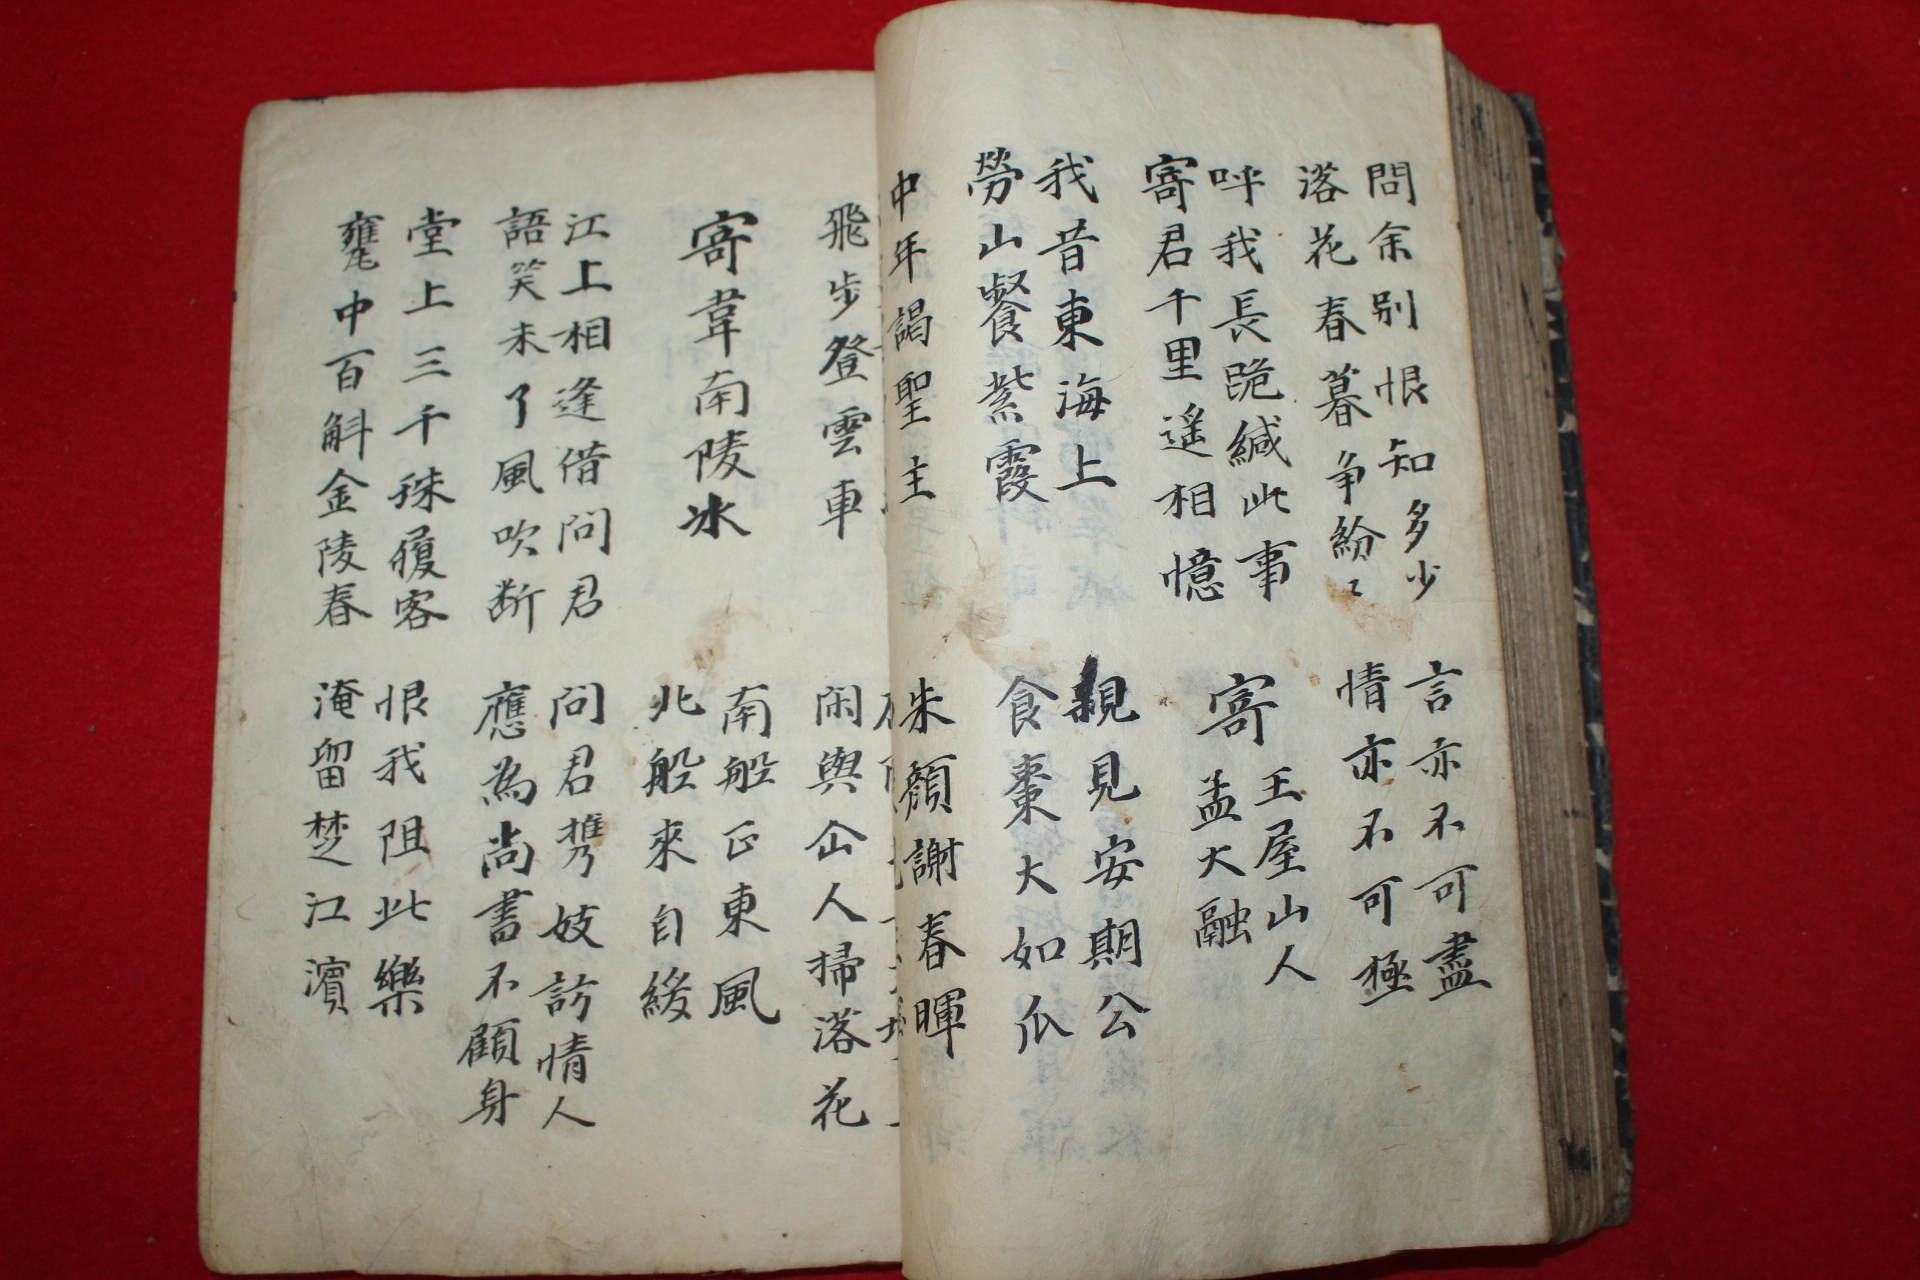 問余別恨知多少
落花春暮争紛〻
言亦不可盡
情亦不可極
呼我長跪緘此事
寄君千里遙相憶
寄
王屋山人
孟大融
我昔東海上
勞山餐紫霞
親見安期公
食棗大如瓜
中年謁聖主
朱顏謝春暉
飛步登雲車
閑與仚人掃落花
寄韋南陵冰
南船正東風
北船來自緩
江上相逢借問君
語笑未了風吹断
問君携妓訪情人
應為尚書不顧身
堂上三千珠履客
甕中百斛金陵春
恨我阻此樂
淹留楚江濱